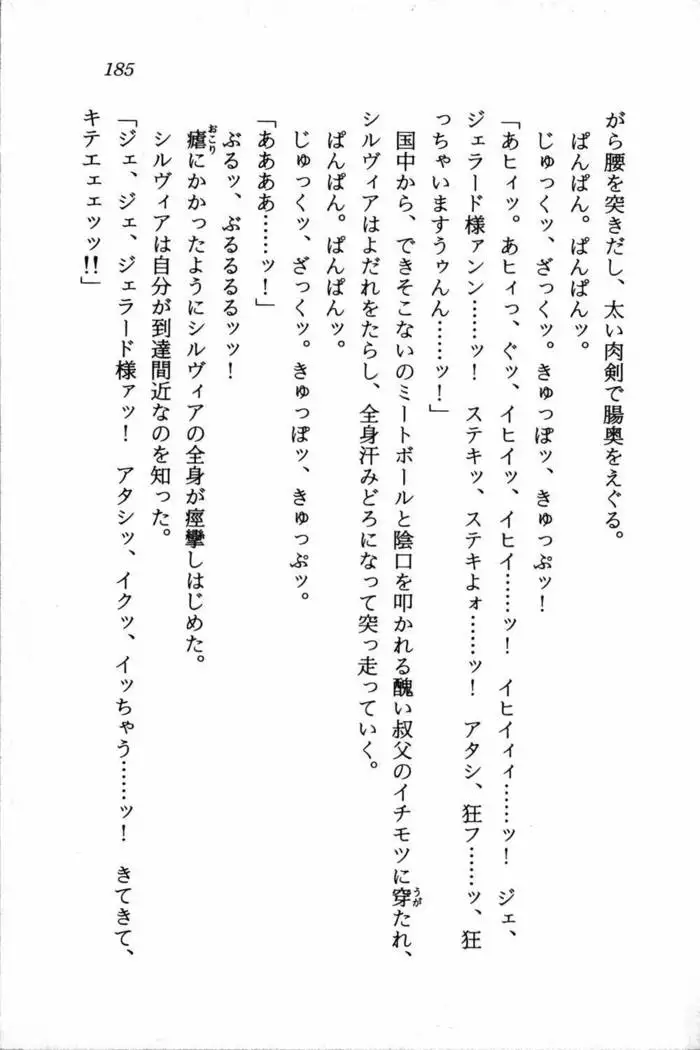 185
がら腰を突きだし、太い肉剣で腸奥をえぐる。
ぱんぱん。ぱんぱんッ。
じゅっくッ、ざっくッ。きゅっぽッ、きゅっぷッ！
「あヒィッ。あヒィっ、ぐッ、イヒイッ、イヒイ……ッ！　イヒイィィ……ッ！　ジェ、
ジェラード様ァンン……ッ！　ステキッ、ステキよォ……ッ！　アタシ、狂フ……ッ、狂
っちゃいますうゥんん……ッ！」
国中から、できそこないのミートボールと陰口を叩かれる醜い叔父のイチモツに穿たれ、
うが
シルヴィアはよだれをたらし、全身汗みどろになって突っ走っていく。
ぱんぱん。ぱんぱんッ。
じゅっくッ、ざっくッ。きゅっぽッ、きゅっぷッ。
「ああああ……ッ！」
ぶるッ、ぶるるるるッッ！
瘧にかかったようにシルヴィアの全身が痙攣しはじめた。
おこり
シルヴィアは自分が到達間近なのを知った。
「ジェ、ジェ、ジェラード様ァッ！　アタシッ、イクッ、イッちゃう……ッ！　きてきて、
キテエェェッッ!!」